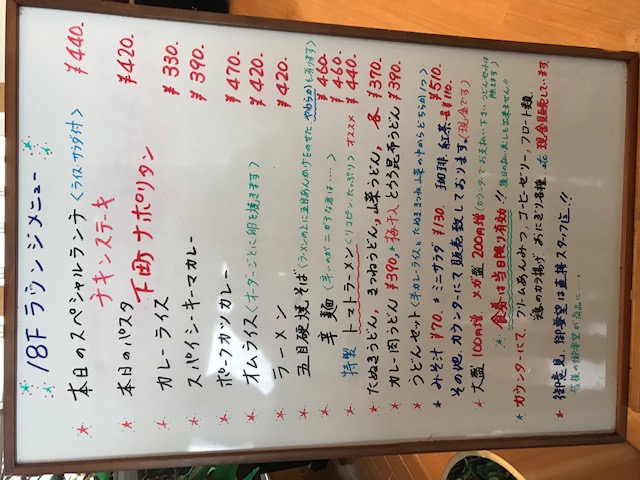 18F ラウンジメニュー
本日のスペシャルランチ <ライス・サラダ付> ¥440.
チキンステーキ
本日のパスタ ¥420.
下町ナポリタン
カレーライス ¥330.
スパイシーキーマカレー ¥390.
ポークカツカレー ¥470.
オムライス <オーダーごとに卵を焼きます> ¥420.
ラーメン ¥420.
五目硬焼そば <ラーメンの上に五目あんかけをのせた やわらかも有ります> ¥460.
辛麺 <辛〜いがニガテな方は……> ¥460.
特製 トマトラーメン <リコピンたっぷり> オススメ ¥440.
たぬきうどん, きつねうどん, 山菜うどん, 各 ¥370.
カレー肉うどん ¥390. 梅干入 とろろ昆布うどん ¥390.
うどんセット <半カレーライスとたぬききつね山菜の中からどちらか1つ> ¥510.
みそ汁 ¥70. ミニサラダ ¥130. 珈琲 紅茶 各¥110.
その他 カウンターにて販売致しております。(現金です)
大盛 100円増 メガ盛 200円増 (カウンターでお支払い下さい うどんセットは除きます)
食券は当日限り有効!! 後日の払い戻しも出来ません!!
カウンターにて, クリームあんみつ, コーヒーゼリー, フロート類,
鶏のから揚げ おにぎり各種, etc 現金販売しています.
御意見, 御要望は直接スタッフ迄!!
皆様の御要望が商品に…。